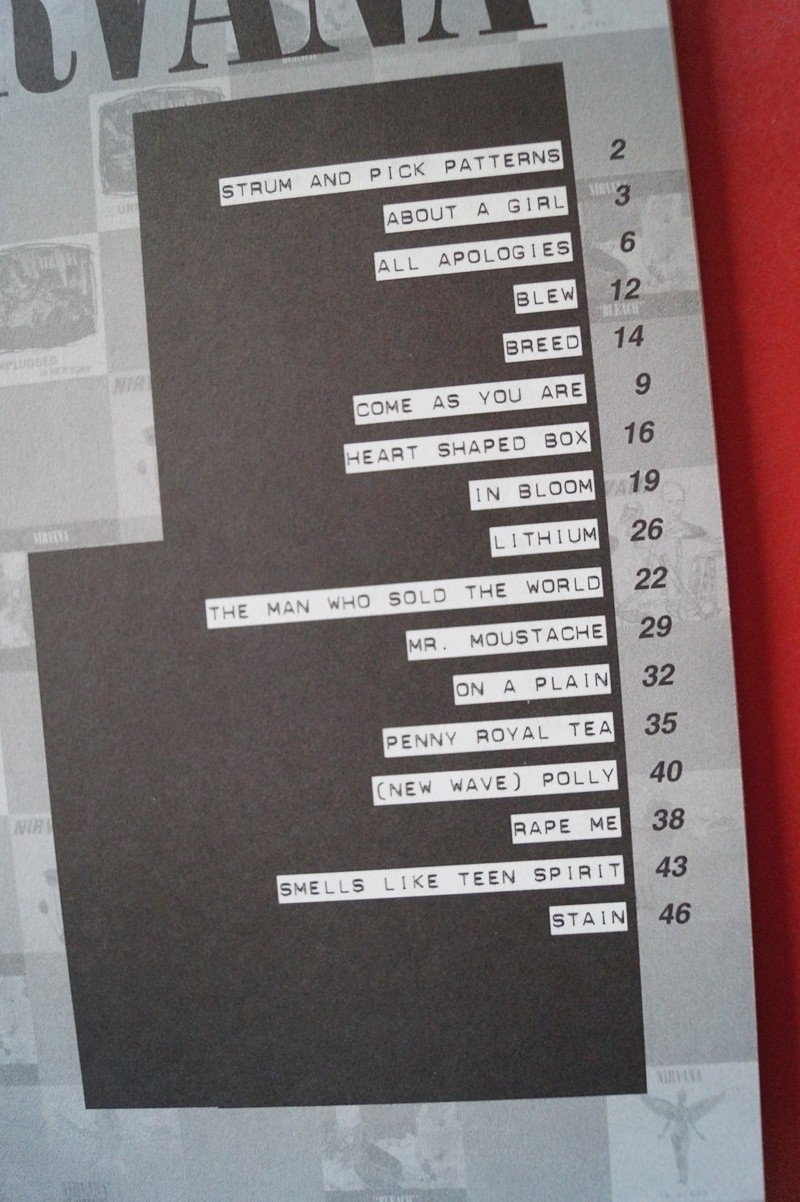 RVANA
STRUM AND PICK PATTERNS 2
ABOUT A GIRL 3
ALL APOLOGIES 6
BLEW 12
BREED 14
COME AS YOU ARE 9
HEART SHAPED BOX 16
IN BLOOM 19
LITHIUM 26
THE MAN WHO SOLD THE WORLD 22
MR. MOUSTACHE 29
ON A PLAIN 32
PENNY ROYAL TEA 35
(NEW WAVE) POLLY 40
RAPE ME 38
SMELLS LIKE TEEN SPIRIT 43
STAIN 46
NIRVANA
"BLEACH"
NPLUGGED
IN NEW YORK
NIRVANA
NIRVANA